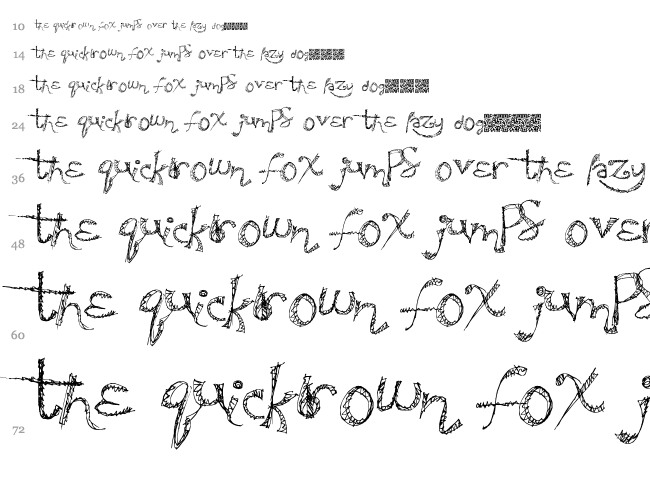 10 the quickbrown fox jumps over the lazy dog
14 the quickbrown fox jumps over the lazy dog
18 the quickbrown fox jumps over the lazy dog
24 the quickbrown fox jumps over the lazy dog
36 the quickbrown fox jumps over the lazy
48 the quickbrown fox jumps over
60 the quickbrown fox jumps
72 the quickbrown fox j